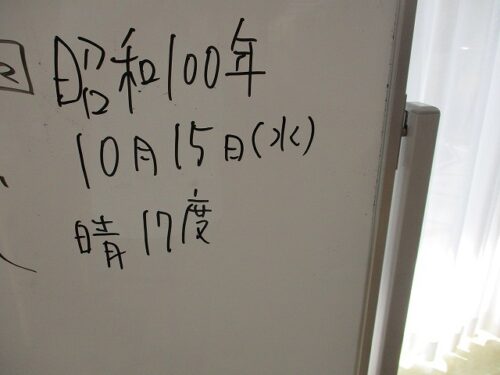 昭和100年
10月15日(水)
晴 17度